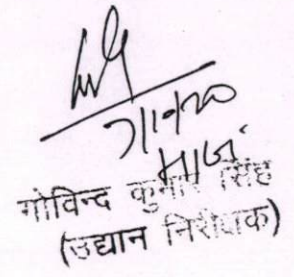 7/10/20
गोविन्द कुमार सिंह
(उद्यान निरीक्षक)